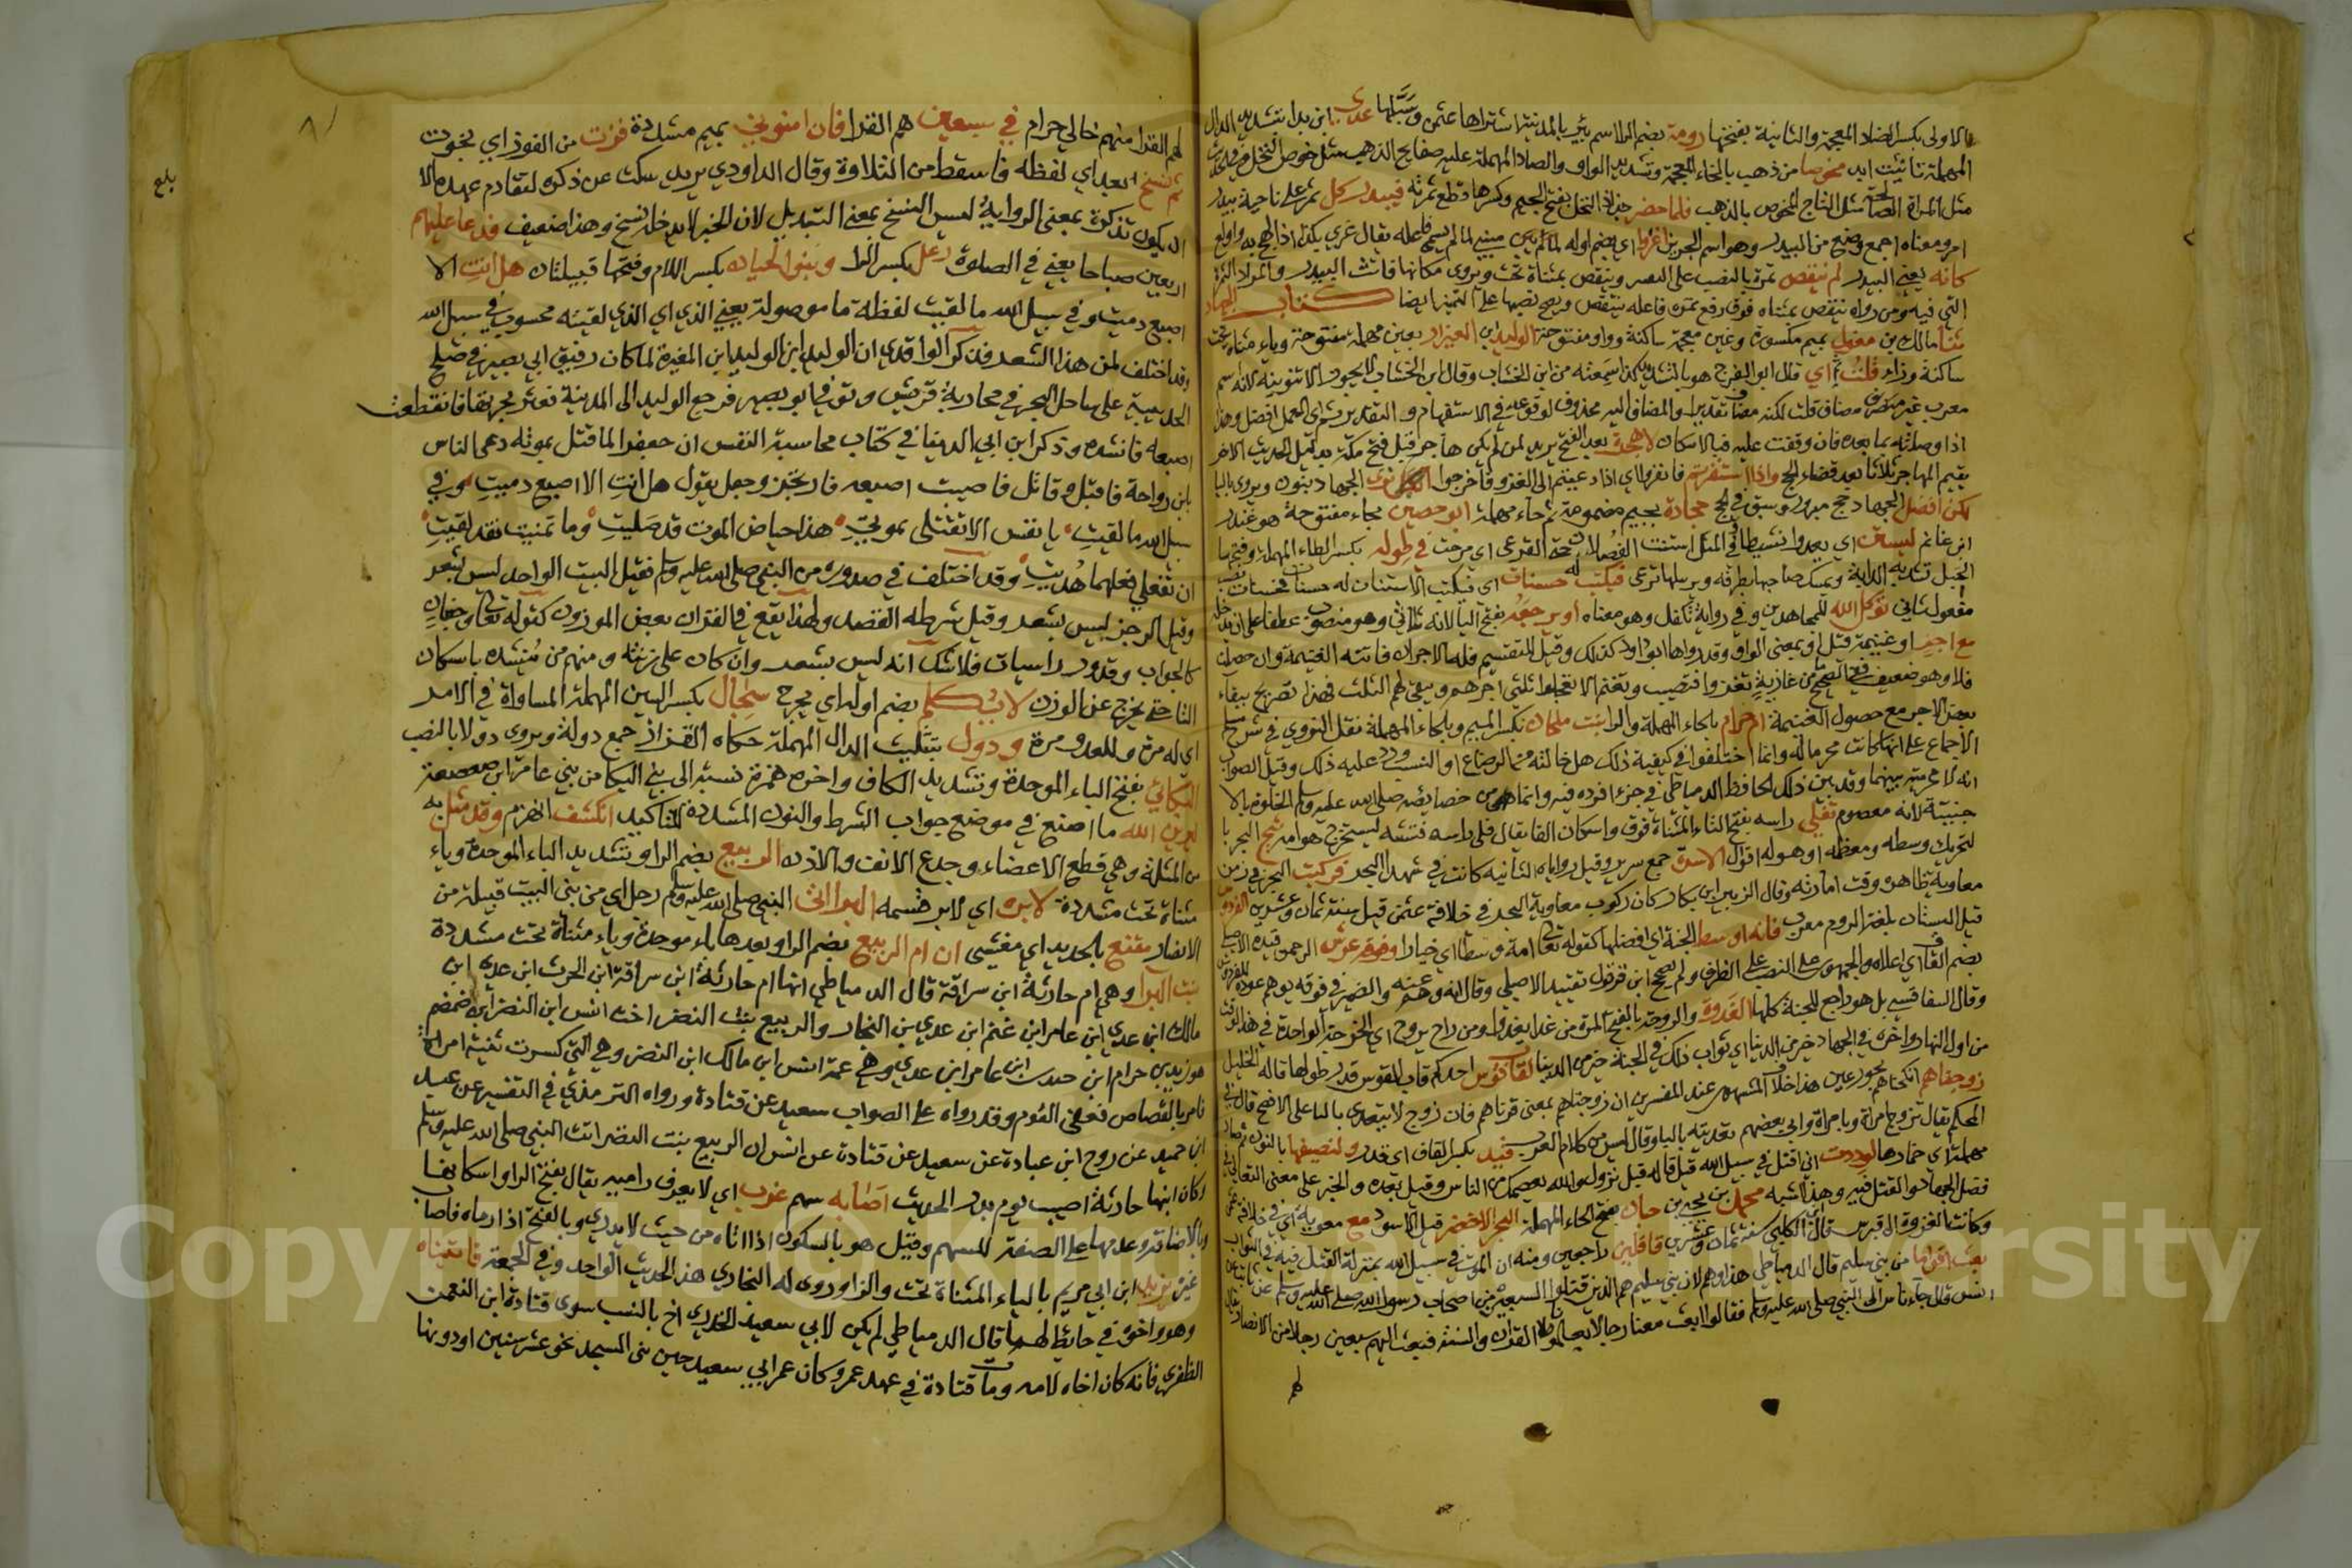 الاولى بكسر الضاد المعجمة والثانية بفتحها رومة بضم الراء اسم بئر بالمدينة اشتراها عثمن وسبلها عدي ابن بدا بتشديد الدال
المهملة تانيث ابد مخوصا من ذهب بالخاء المعجمة وتشديد الواو والصاد المهملة عليه صفايح الذهب مثل خوص النخل
مثل المراة الصالحة مثل التاج المخوص بالذهب فلما حضر جذاذ النخل بفتح الجيم وكسرها قطع ثمرته فبيدر كل تمر على ناحية بيدر
امر ومعناه اجمع وضع من البيدر وهو اسم الجرين اغروا اي بضم اوله لما لم يسم فاعله يقال غري بكذا اذا لهج به واولع
كانه يعني البيدر لم تنقص تمرة بالنصب على التمييز وينقص بمثناة تحت ويروى مكانها فاث البيدر والمراد التمرة
التي فيه ومن رواه تنقص بمثناه فوق رفع تمره فاعله بتنقص ويصح نصبها على التميز ايضا كتاب الجهاد
ثنا مالك بن مغول بميم مكسورة وغين معجمة ساكنة وواو مفتوحة الوليد ابن العيزار بعين مهملة مفتوحة وياء مثناة تحت
ساكنة وزاء قلت ثم اي قال ابو الفرج هو بالتشديد كذا سمعته من ابن الخشاب وقال ابن الخشاب لا يجوز الا تنوينه لانه اسم
معرب غير مضاف قلت لكنه مضاف تقديرا والمضاف اليه محذوف لوقوعه في الاستفهام والتقدير ثم اي العمل افضل وهذا
اذا وصلته بما بعده فان وقفت عليه فبالاسكان لا هجرة بعد الفتح يريد لمن لم يكن هاجر قبل فتح مكة بدليل الحديث الاخر
يقيم المهاجر ثلاثا بعد قضاء الحج واذا استنفرتم فانفروا اي اذا دعيتم الى الغزو فاخرجوا الجهاد بنون ويروى بالبا
لكن افضل الجهاد حج مبرور وسبق في الحج حجادة بجيم مضمومة ثم حاء مهملة ابو حصين بحاء مفتوحة هو غندر
ابن غانم ليستن اي يعدوا نشيطا وفي المثل استنت الفصال حتى القرعى اي مرحت في طوله بكسر الطاء المهملة وفتح ما
الحبل تشد به الدابة ويمسك صاحبها بطرفه ويرسلها ترعى فيكتب له حسنات اي فيكتب الاستنان له حسنات فحسنات نصب
مفعول ثاني توكل الله للمجاهدين وفي رواية تكفل وهو معناه او يرجعه بفتح اليا لانه ثلاثي وهو منصوب عطفا على ان يدخله
مع اجر او غنيمة قيل او بمعنى الواو وقد رواها ابو داود كذلك وقيل للتقسيم فله الاجر ان فاتته الغنيمة وان حصلت
فلا وهو ضعيف ففي الصحيح من غازية تغزوا فتصيب وتغنم الا تعجلوا ثلثي اجرهم ويبقى لهم الثلث فهذا تصريح ببقاء
بعض الاجر مع حصول الغنيمة ام حرام بالحاء المهملة والراء بنت ملحان بكسر الميم وبالحاء المهملة نقل النووي في شرح مسلم
الاجماع على انها كانت محرما له وانما اختلفوا في كيفية ذلك هل خالته من الرضاع او النسب ورد عليه ذلك وقيل الصواب
انه لا محرمية بينهما وقد بين ذلك الحافظ الدمياطي في جزء افرده فيه وانما هي من خصايصه صلى الله عليه وسلم الخلوة بالا
جنبية لانه معصوم تفلي راسه بفتح التاء المثناة فوق واسكان الفا يقال فلى راسه فتشه ليستخرج هوامه ثبج البحر با
لتحريك وسطه ومعظمه او هوله اقوال الاسرة جمع سرير وقيل رواياه الثانيه كانت في شهدا البحر فركبت البحر في زمن
معاوية ظاهره وقت امارته وقال الزبير ابن بكار كان ركوب معاوية البحر في خلافة عثمن قيل سنة ثمان وعشرين الفردوس
قيل البستان بلغة الروم معرب فانه اوسط الجنة اي افضلها كقوله تعالى امة وسطا اي خيارا وفوقه عرش الرحمن قيده الاصيلي
بضم القاف اي اعلاه والجمهور على النصب على الظرف ولم يصحح ابن قرقول تقييد الاصيلي وقال انه وهم عنه والضمير في فوقه يوهم عوده للفردوس
وقال السفاقسي بل هو راجع للجنة كلها الغدوة والروحة بالفتح المرة من غدا يغدوا ومن راح يروح اي الخرجة الواحدة في هذا الوقت
من اول النهار واخره في الجهاد خير من الدنيا اي ثواب ذلك في الجنة خير من الدنيا لقاب قوس احدكم قاب القوس قدر طولها قاله الخليل
زوجناهم انكحناهم بحور عين هذا خلاف المشهور عند المفسرين ان زوجناهم بمعنى قرناهم فان زوج لا يتعدى بالبا على الافصح قال في
المحكم يقال تزوج امراة وبامراة وابى بعضهم تعديته بالبا وقال ليس من كلام العرب قيد بكسر القاف اي قدر ولنصيفها بالنون ثم صاد
مهملة اي خمارها لوددت اني اقتل في سبيل الله قيل قاله قبل نزول والله يعصمك من الناس وقيل بعده والخبر على معنى التغالي في
فضل الجهاد والقتل فيه وهذا اشبه محمد بن يحيى بن حبان بفتح الحاء المهملة البحر الاخضر قيل الاسود مع معوية اي في خلافة عثمن
وكانت الغزوة الى قبرس قال ابن الكلبي سنة ثمان وعشرين قافلين راجعين ومنه ان الموت في سبيل الله بمنزلة القتل فيه في الثواب
بعث اقواما من بني سليم قال الدمياطي هذا وهم لان بني سليم هم الذين قتلوا السبعين من اصحاب رسول الله صلى الله عليه وسلم عن ثابت عن
انس قال جاء ناس الى النبي صلى الله عليه وسلم فقالوا ابعث معنا رجالا يعلمونا القران والسنة فبعث اليهم سبعين رجلا من الانصار يقال
لهم
٨١
لهم القرا منهم خالي حرام في سبعين هم القرا فان امنوني بميم مشددة فزت من الفوز اي نجوت
ثم نسخ بعد اي لفظه فاسقط من التلاوة وقال الداودي يريد سكت عن ذكره لتقادم عهده الا
ان يكون تذكرة بمعنى الرواية ليس النسخ بمعنى التبديل لان الخبر لا يدخله نسخ وهذا ضعيف فدعا عليهم
اربعين صباحا يعني في الصلوة رعل بكسر الرا وبنوا لحيان بكسر اللام وفتحها قبيلتان هل انت الا
اصبع دميت وفي سبيل الله ما لقيت لفظه ما موصولة بمعنى الذي اي الذي لقيته محسوب في سبيل الله
وقد اختلف لمن هذا الشعر فذكر الواقدي ان الوليد ابن الوليد ابن المغيرة لما كان رفيق ابي بصير في صلح
الحديبية على ساحل البحر في محاربة قريش وتوفي ابو بصير فرجع الوليد الى المدينة فعثر بحرتها فانقطعت
اصبعه فانشده وذكر ابن ابي الدنيا في كتاب محاسبة النفس ان جعفرا لما قتل بموته دعى الناس
بابن رواحة فاقبل وقاتل فاصيب اصبعه فارتجز وجعل يقول هل انت الا اصبع دميت وفي
سبيل الله ما لقيت يا نفس الا تقتلي تموتي هذا حياض الموت قد صليت وما تمنيت فقد لقيت
ان تفعلي فعلهما هديت وقد اختلف في صدوره من النبي صلى الله عليه وسلم فقيل البيت الواحد ليس بشعر
وقيل الرجز ليس بشعر وقيل شرطه القصد ولهذا يقع في القران بعض الموزون كقوله تعالى وجفان
كالجواب وقدور راسيات فلا شك انه ليس بشعر وان كان على زنته ومنهم من ينشده باسكان
التا حتى يخرج عن الوزن لا يكلم بضم اوله اي يجرح سجال بكسر السين المهملة المساواة في الامر
اي له مرة وللعدو مرة ودول بتثليث الدال المهملة حكاه القزاز جمع دولة ويروى دولا بالنصب
البكائي بفتح الباء الموحدة وتشديد الكاف واخره همزة نسبة الى بني البكا من بني عامر ابن صعصعة
ليرين الله ما اصنع في موضع جواب الشرط والنون المشددة للتاكيد انكشف انهزم وقد مثل به
من المثلة وهي قطع الاعضاء وجدع الانف والاذن الربيع بضم الرا وتشديد الباء الموحدة وياء
مثناة تحت مشددة لابره اي لابر قسمه البراءان النبي صلى الله عليه وسلم رجل اي من بني النبيت قبيلة من
الانصار مقنع بالحديد اي مغشى ان ام الربيع بضم الرا وبعدها باء موحدة وياء مثناة تحت مشددة
بنت البرا وهي ام حارثة ابن سراقة قال الدمياطي انها ام حارثة ابن سراقة ابن الحرث ابن عدي ابن
مالك ابن عدي ابن عامر ابن غنم ابن عدي بن النجار والربيع بنت النضر اخت انس ابن النضر ابن ضمضم
ابن زيد بن حرام ابن جندب ابن عامر ابن عدي وهي عمة انس ابن مالك ابن النضر وهي التي كسرت ثنية امراة
فامر بالقصاص فعفى القوم وقد رواه على الصواب سعيد عن قتادة ورواه الترمذي في التفسير عن عبد
ابن حميد عن روح ابن عبادة عن سعيد عن قتادة عن انس ان الربيع بنت النضر اتت النبي صلى الله عليه وسلم
وكان ابنها حارثة اصيب يوم بدر الحديث اصابه سهم غرب اي لا يعرف راميه يقال بفتح الرا واسكانها
وبالاضافة وعدمها على الصفة للسهم وقيل هو بالسكون اذا اتاه من حيث لا يدري وبالفتح اذا رماه فاصاب
غيره يزيد ابن ابي مريم بالياء المثناة تحت والزا وروى له البخاري هذا الحديث الواحد وفي الجمعة فاتيناه
وهو واخوه في حائط لهما قال الدمياطي لم يكن لابي سعيد الخدري اخ بالنسب سوى قتادة ابن النعمن
الظفري فانه كان اخاه لامه ومات قتادة في عهد عمر وكان عمر ابي سعيد حين بنى المسجد نحو عشر سنين او دونها
بلغ
Copyright © King Saud University